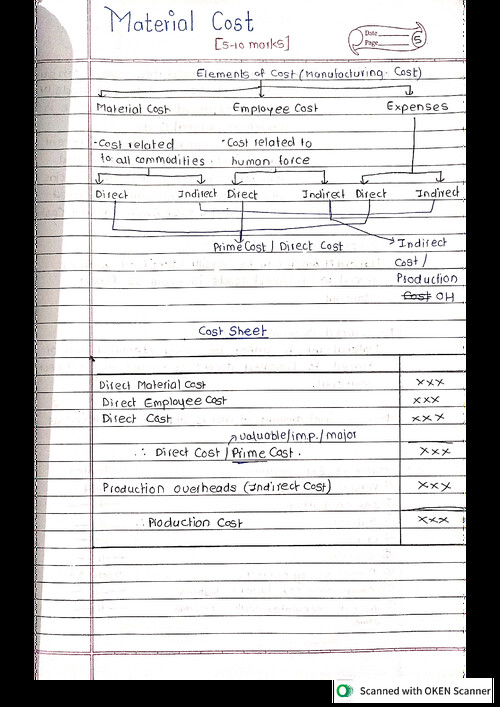 Material Cost
[5-10 marks]
Date
Page 5
Elements of Cost (Manufacturing Cost)
Material Cost Employee Cost Expenses
- Cost related - Cost related to
to all commodities. human force
Direct Indirect Direct Indirect Direct Indirect
Prime Cost / Direct Cost Indirect
Cost /
Production
Cost OH
Cost Sheet
Direct Material Cost xxx
Direct Employee Cost xxx
Direct Cost xxx
valuable/imp./major
∴ Direct Cost / Prime Cost. xxx
Production overheads (Indirect Cost) xxx
∴ Production Cost xxx
Scanned with OKEN Scanner